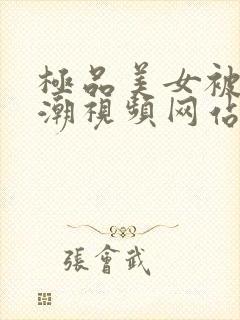 極品美女被
潮視頻网佔
張會武